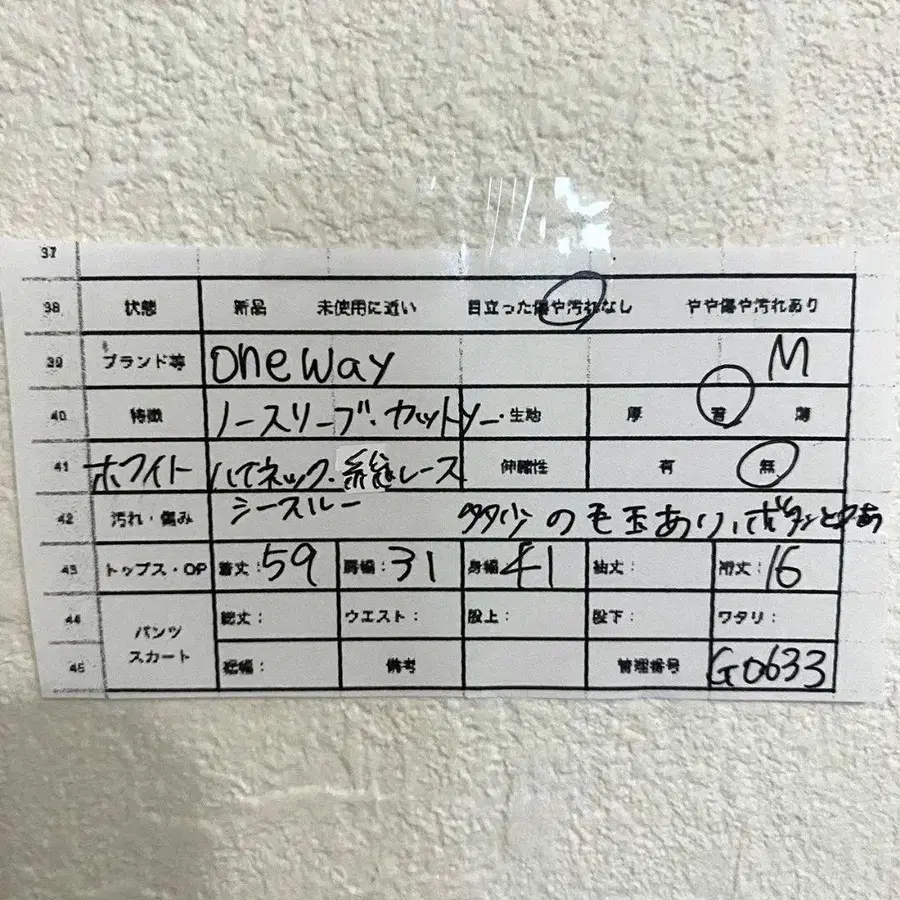 37
38 状態 新品 未使用に近い 目立った傷や汚れなし やや傷や汚れあり
39 ブランド等 one way M
40 特徴 ノースリーブ・カットソー・ 生地 厚 普 薄
41 ホワイト ハイネック・総レース 伸縮性 有 無
シースルー
42 汚れ・傷み 多少の毛玉あり、ボタン
43 トップス・OP 着丈:59 肩幅:31 身幅:41 袖丈: 裄丈:16
44 パンツ 総丈: ウエスト: 股上: 股下: ワタリ:
45 スカート 裾幅: 備考 管理番号 G0633